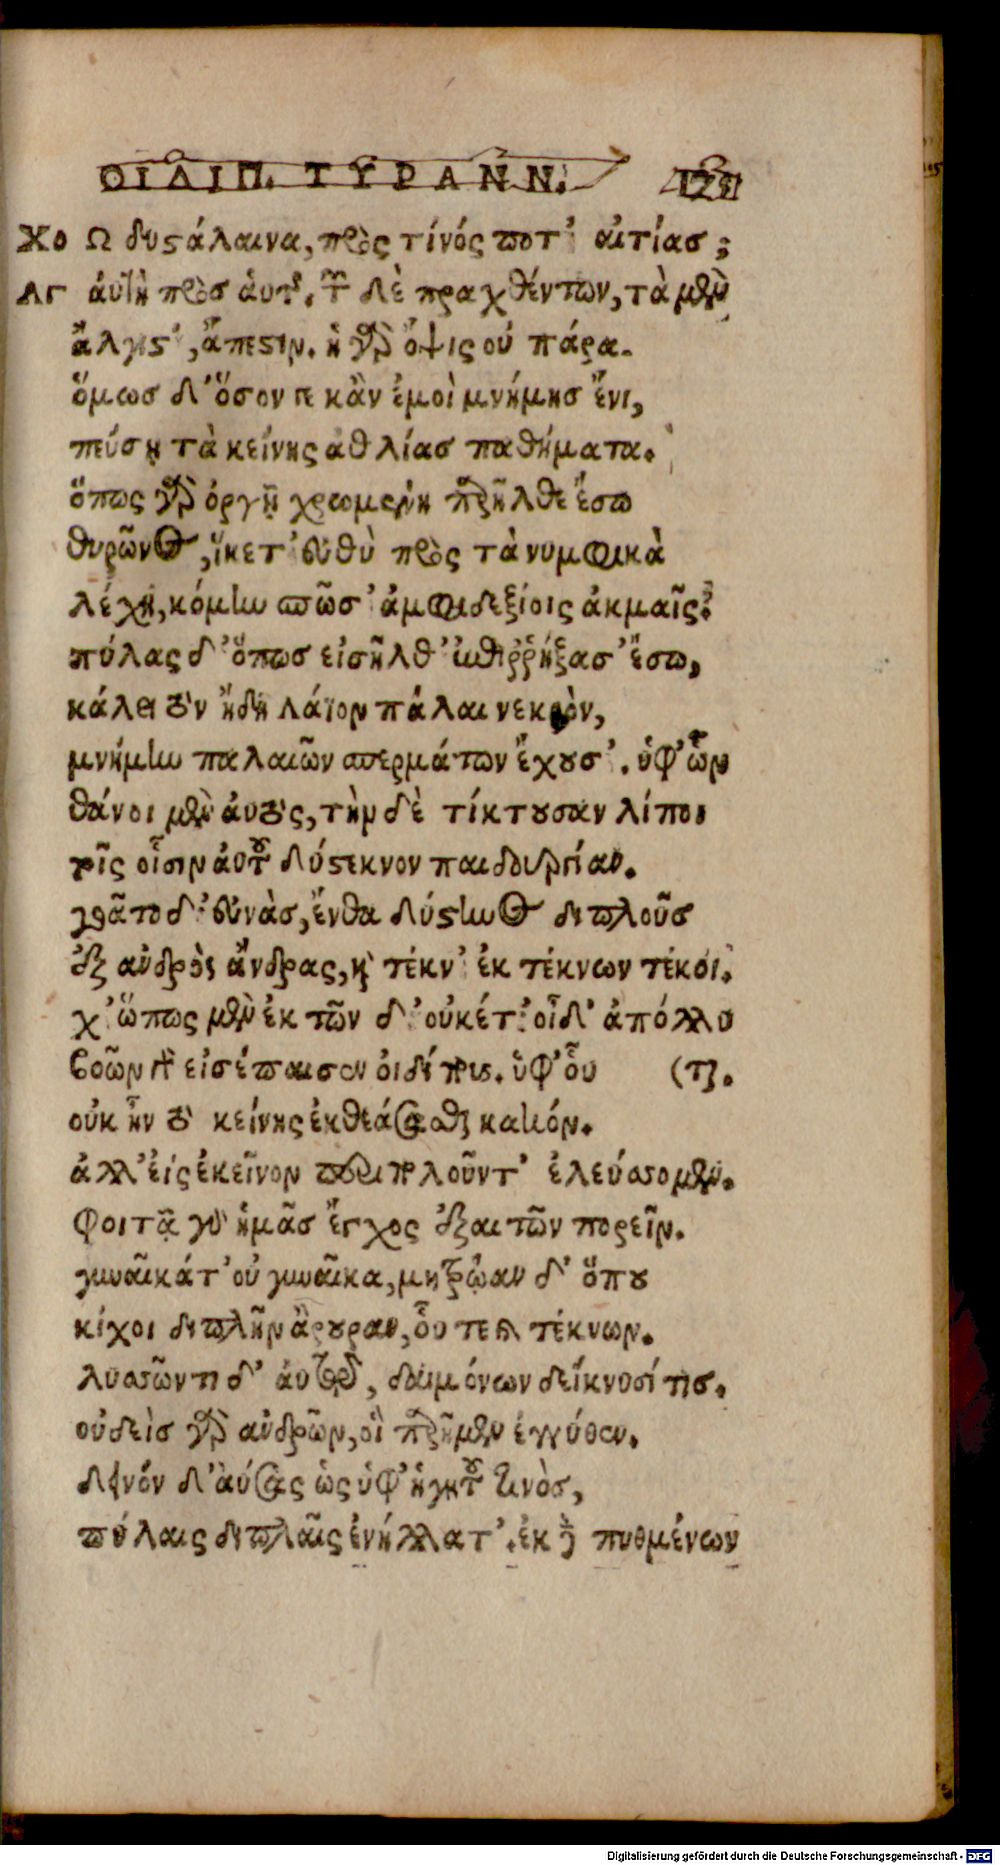 ΟΙΔΙΠ. ΤΥΡΑΝΝ.
ΧΟ Ω δυστάλαινα, πρὸς τίνός ποτ' αἰτίασ;
ΑΓ ἀυτὴ πρὸσ ἁυτῆς. τῶν δὲ πραχθέντων, τὰ μὲν
ἄλγιστ', ἄπεστιν. ἡ γὰρ ὄψις οὐ πάρα.
ὅμωσ δ' ὅσον γε κἂν ἐμοὶ μνήμησ ἔνι,
πεύσῃ τὰ κείνης ἀθλίασ παθήματα.
ὅπως γὰρ ὀργῇ χρωμένη παρῆλθε ἔσω
θυρῶνος, ἵκετ' εὐθὺ πρὸς τὰ νυμφικὰ
λέχη, κόμην σπῶσ' ἀμφιδεξίοις ἀκμαῖς.
πύλας δ' ὅπωσ εἰσῆλθ' ἐπιῤῥήξασ' ἔσω,
κάλει τὸν ἤδη λάϊον πάλαι νεκρὸν,
μνήμην παλαιῶν σπερμάτων ἔχουσ'. ὑφ' ὧν
θάνοι μὲν ἀυτὸς, τὴν δὲ τίκτουσαν λίποι
τοῖς οἷσιν ἀυτοῦ δύστεκνον παιδουργίαν.
γοᾶτο δ' εὐνὰσ, ἔνθα δύστηνος διπλοῦσ
ἐξ ἀνδρὸς ἄνδρας, καὶ τέκν' ἐκ τέκνων τέκοι.
χ' ὥπως μὲν ἐκ τῶν δ' οὐκέτ' οἶδ' ἀπόλλυ
βοῶν γὰρ εἰσέπαισεν οἰδίπους. ὑφ' οὗ (ται.
οὐκ ἦν τὸ κείνης ἐκθεάσασθαι κακόν.
ἀλλ' εἰς ἐκεῖνον περιπολοῦντ' ἐλεύσσομεν.
φοιτᾷ γὰρ ἡμᾶσ ἔγχος ἐξαιτῶν πορεῖν.
γυναῖκά τ' οὐ γυναῖκα, μητρῴαν δ' ὅπου
κίχοι διπλῆν ἄρουραν, οὗ τε καὶ τέκνων.
λυσσῶντι δ' ἀυτῷ, δαιμόνων δείκνυσί τισ.
οὐδεὶσ γὰρ ἀνδρῶν, οἳ παρῆμεν ἐγγύθεν.
δεινὸν δ' ἀύσας ὡς ὑφ' ἡγητοῦ τινὸς,
πύλαις διπλαῖς ἐνήλλατ'. ἐκ δὲ πυθμένων
Digitalisierung gefördert durch die Deutsche Forschungsgemeinschaft - DFG